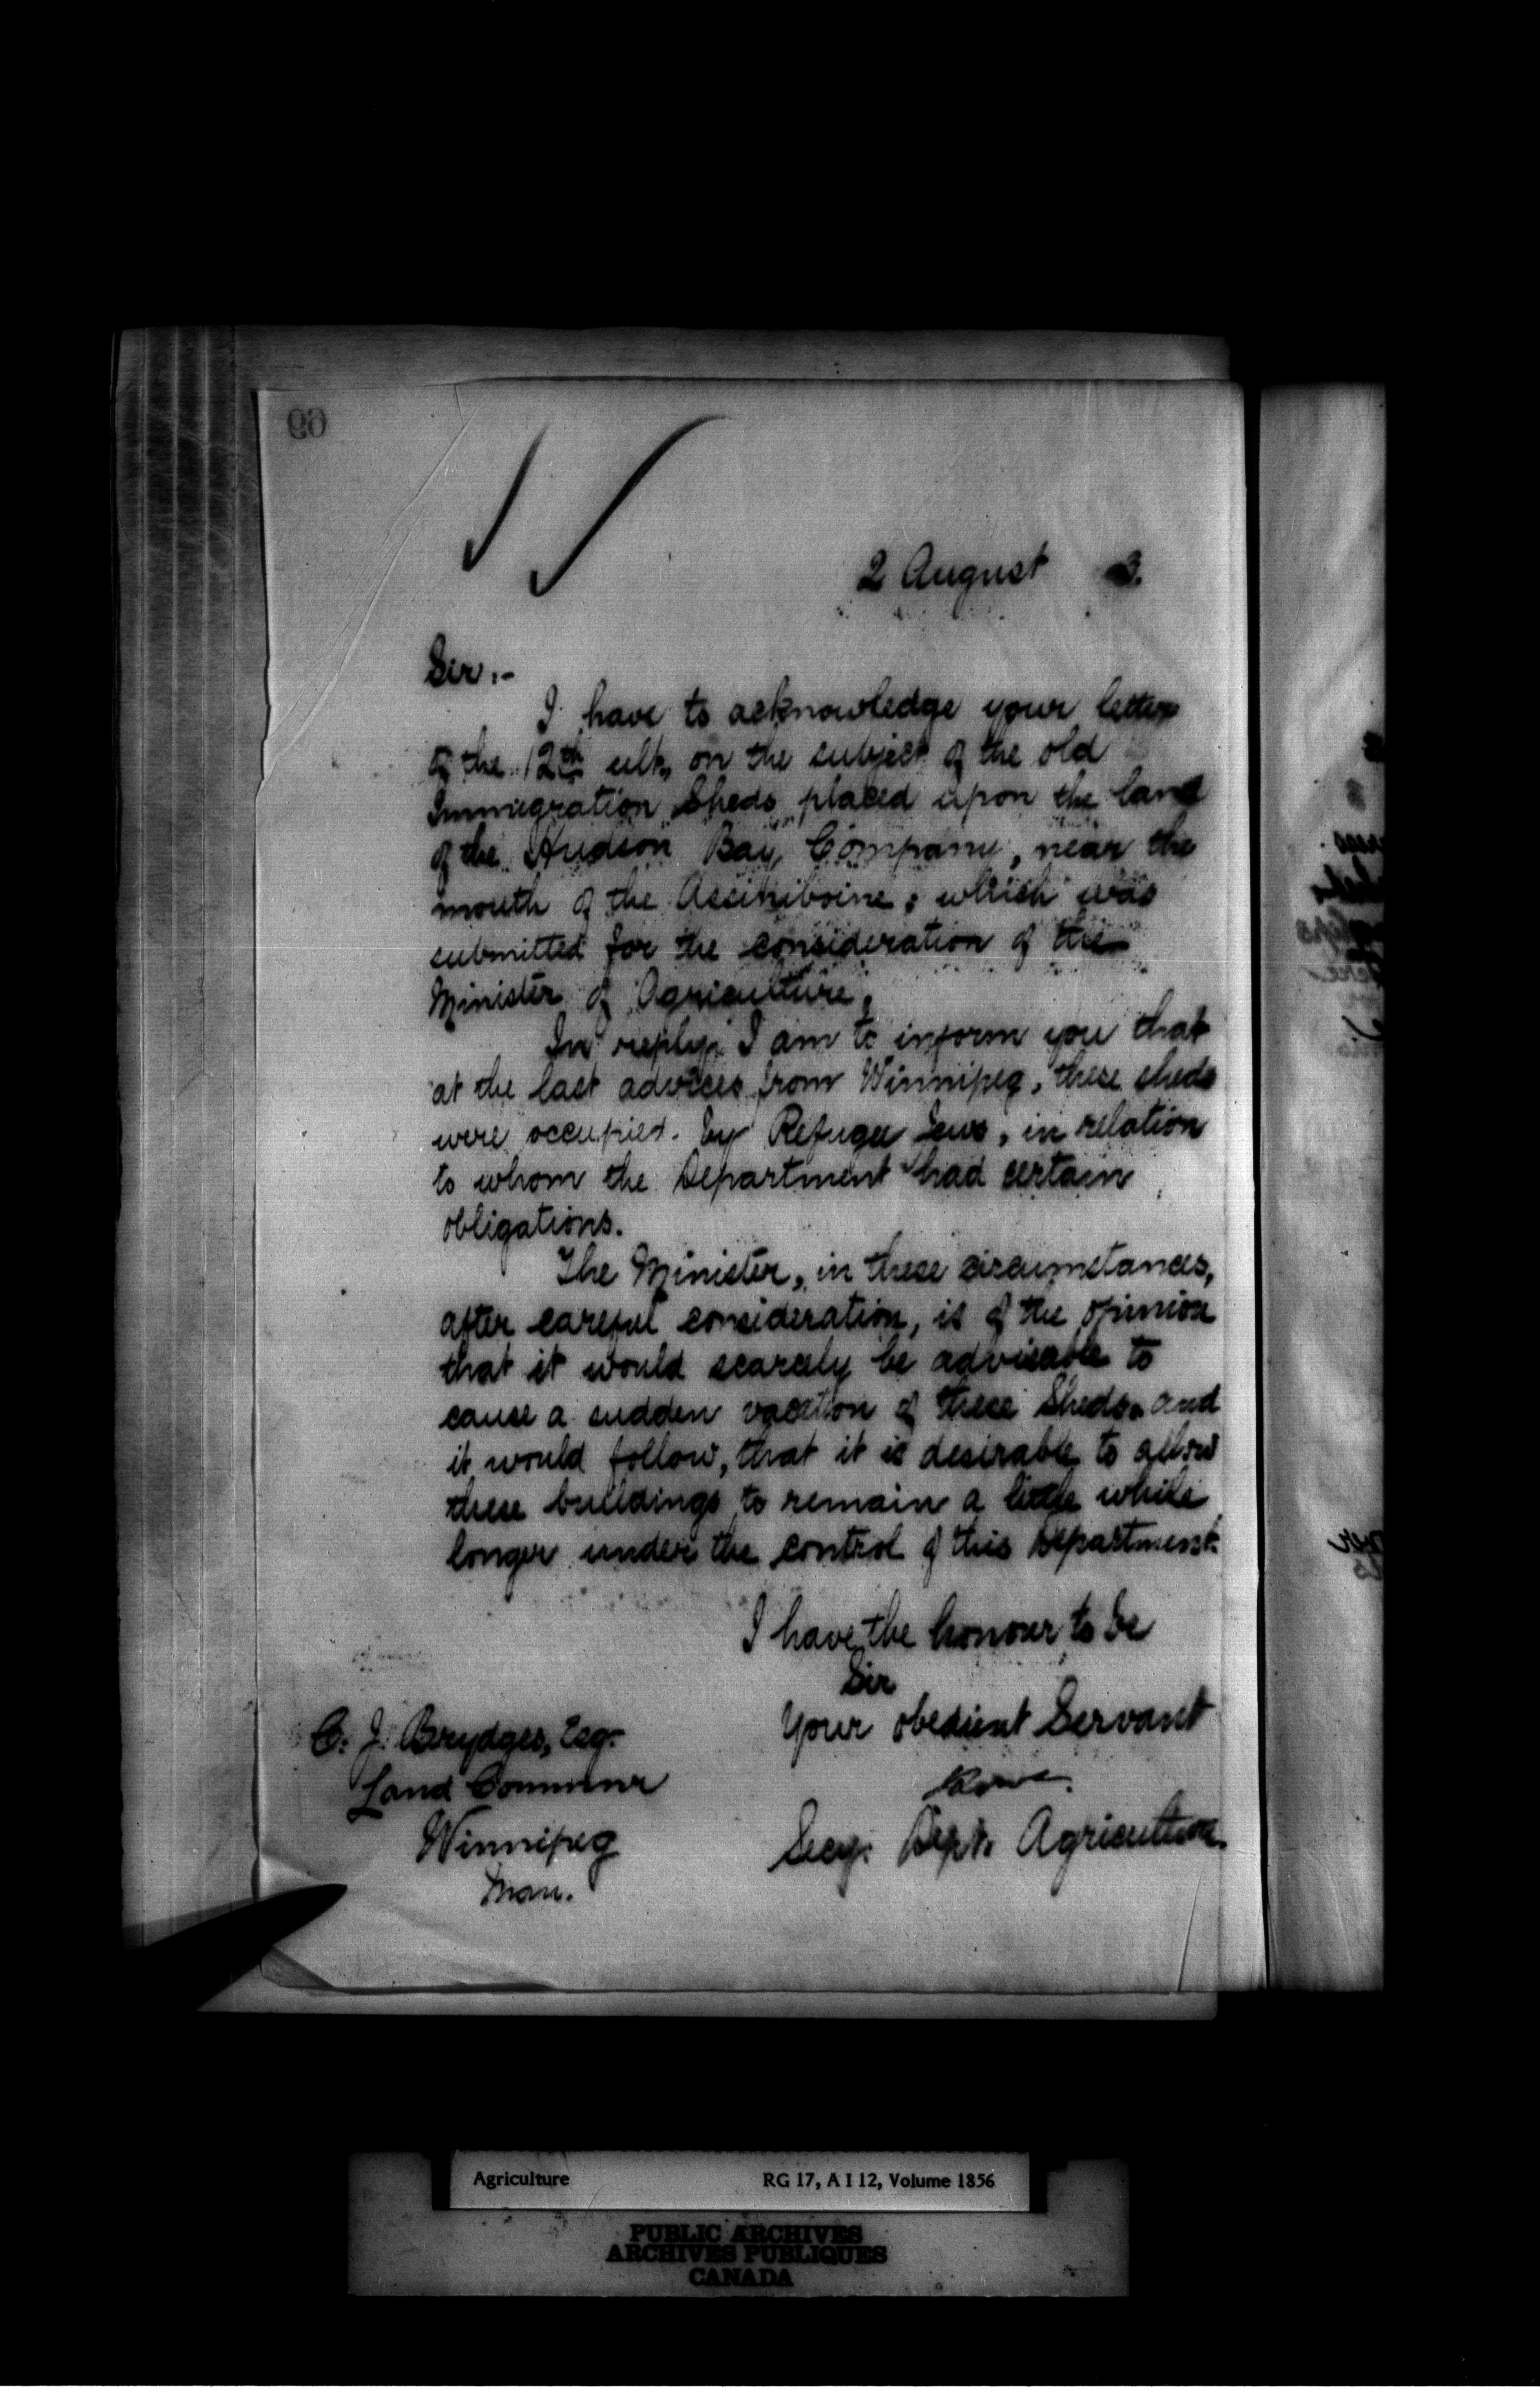 2 August 3.
Sir:-
I have to acknowledge your letter
of the 12th ult., on the subject of the old
Immigration Sheds placed upon the land
of the Hudson Bay Company, near the
mouth of the Assiniboine, which was
submitted for the consideration of the
Minister of Agriculture.
In reply, I am to inform you that
at the last advices from Winnipeg, these sheds
were occupied by Refugee Jews, in relation
to whom the Department had certain
obligations.
The Minister, in these circumstances,
after careful consideration, is of the opinion
that it would scarcely be advisable to
cause a sudden vacation of these Sheds, and
it would follow, that it is desirable to allow
these buildings to remain a little while
longer under the control of this Department.
I have the honour to be
Sir
Your obedient Servant
Secy. Dept. Agriculture.
C. J. Brydges, Esq.
Land Commnr
Winnipeg
Man.
Agriculture RG 17, A I 12, Volume 1856
PUBLIC ARCHIVES
ARCHIVES PUBLIQUES
CANADA